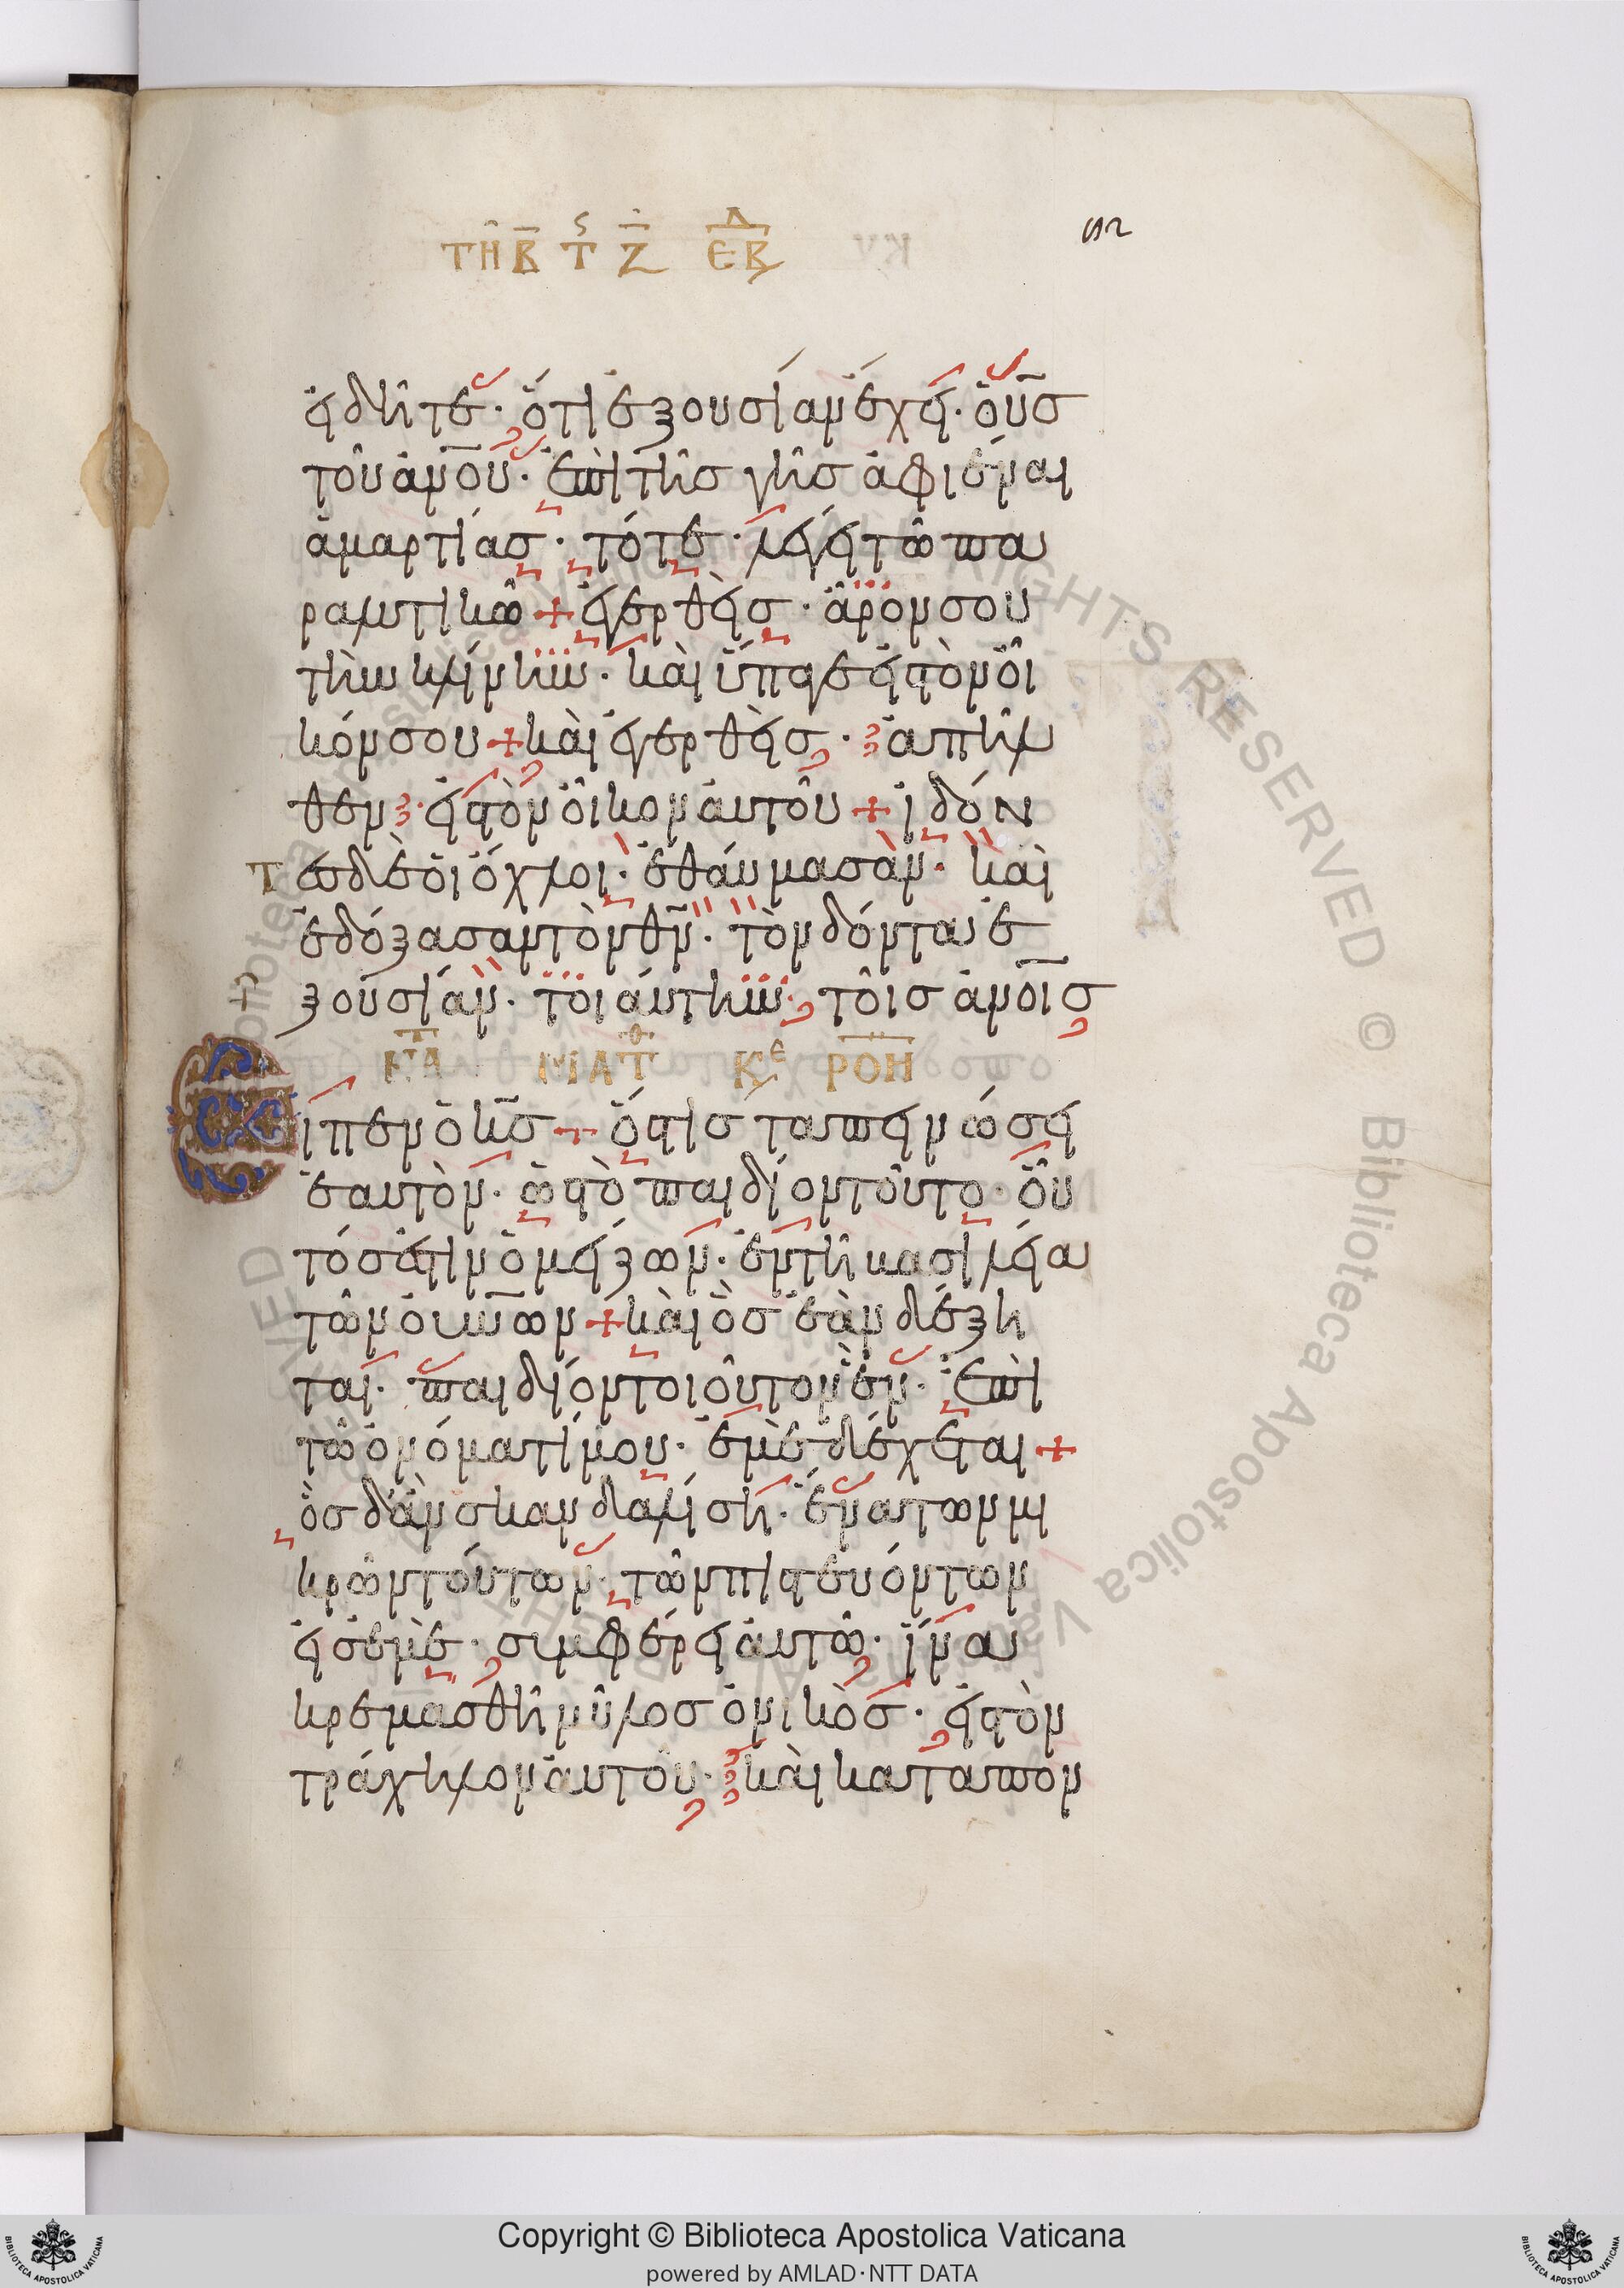 ΤΗ Β Τ Ζ ΕΒΔ
εἰδῆτε· ὅτι ἐξουσίαν ἔχει· ὁ υ̅σ̅
τοῦ ἀν̅ο̅υ̅· ἐπὶ τῆς γῆς ἀφιέναι
ἁμαρτίας· τότε· λέγει τῶ πα
ραλυτικῶ + ἐγερθεὶς· ἆρόν σου
τὴν κλίνην· καὶ ὕπαγε εἰς τὸν οἶ
κόν σου + καὶ ἐγερθεὶς· ἀπῆλ
θεν· εἰς τὸν οἶκον αὐτοῦ + ἰδόν
τες δὲ οἱ ὄχλοι· ἐθαύμασαν· καὶ
ἐδόξασαν τὸν θ̅ν̅· τὸν δόντα ἐ
ξουσίαν· τοιαύτην· τοῖς ἀν̅ο̅ι̅ς̅
ΕΚ ΜΑΤΘ ΚΕ ΡΟΗ
Εἶπεν ὁ κ̅ς̅ + ὅστις ταπεινώσει
ἑαυτὸν· ὡς τὸ παιδίον τοῦτο· οὗ
τός ἐστιν ὁ μείζων· ἐν τῆ βασιλεία
τῶν οὐν̅ων + καὶ ὃς ἐὰν δέξη
ται· παιδίον τοιοῦτον ἓν· ἐπὶ
τῶ ὀνόματί μου· ἐμὲ δέχεται +
ὃς δ' ἂν σκανδαλίση· ἕνα τῶν μι
κρῶν τούτων· τῶν πιστευόντων
εἰς ἐμὲ· συμφέρει αὐτῶ· ἵνα
κρεμασθῆ μύλος ὀνικὸς· εἰς τὸν
τράχηλον αὐτοῦ· καὶ καταπον
Copyright © Biblioteca Apostolica Vaticana
powered by AMLAD·NTT DATA